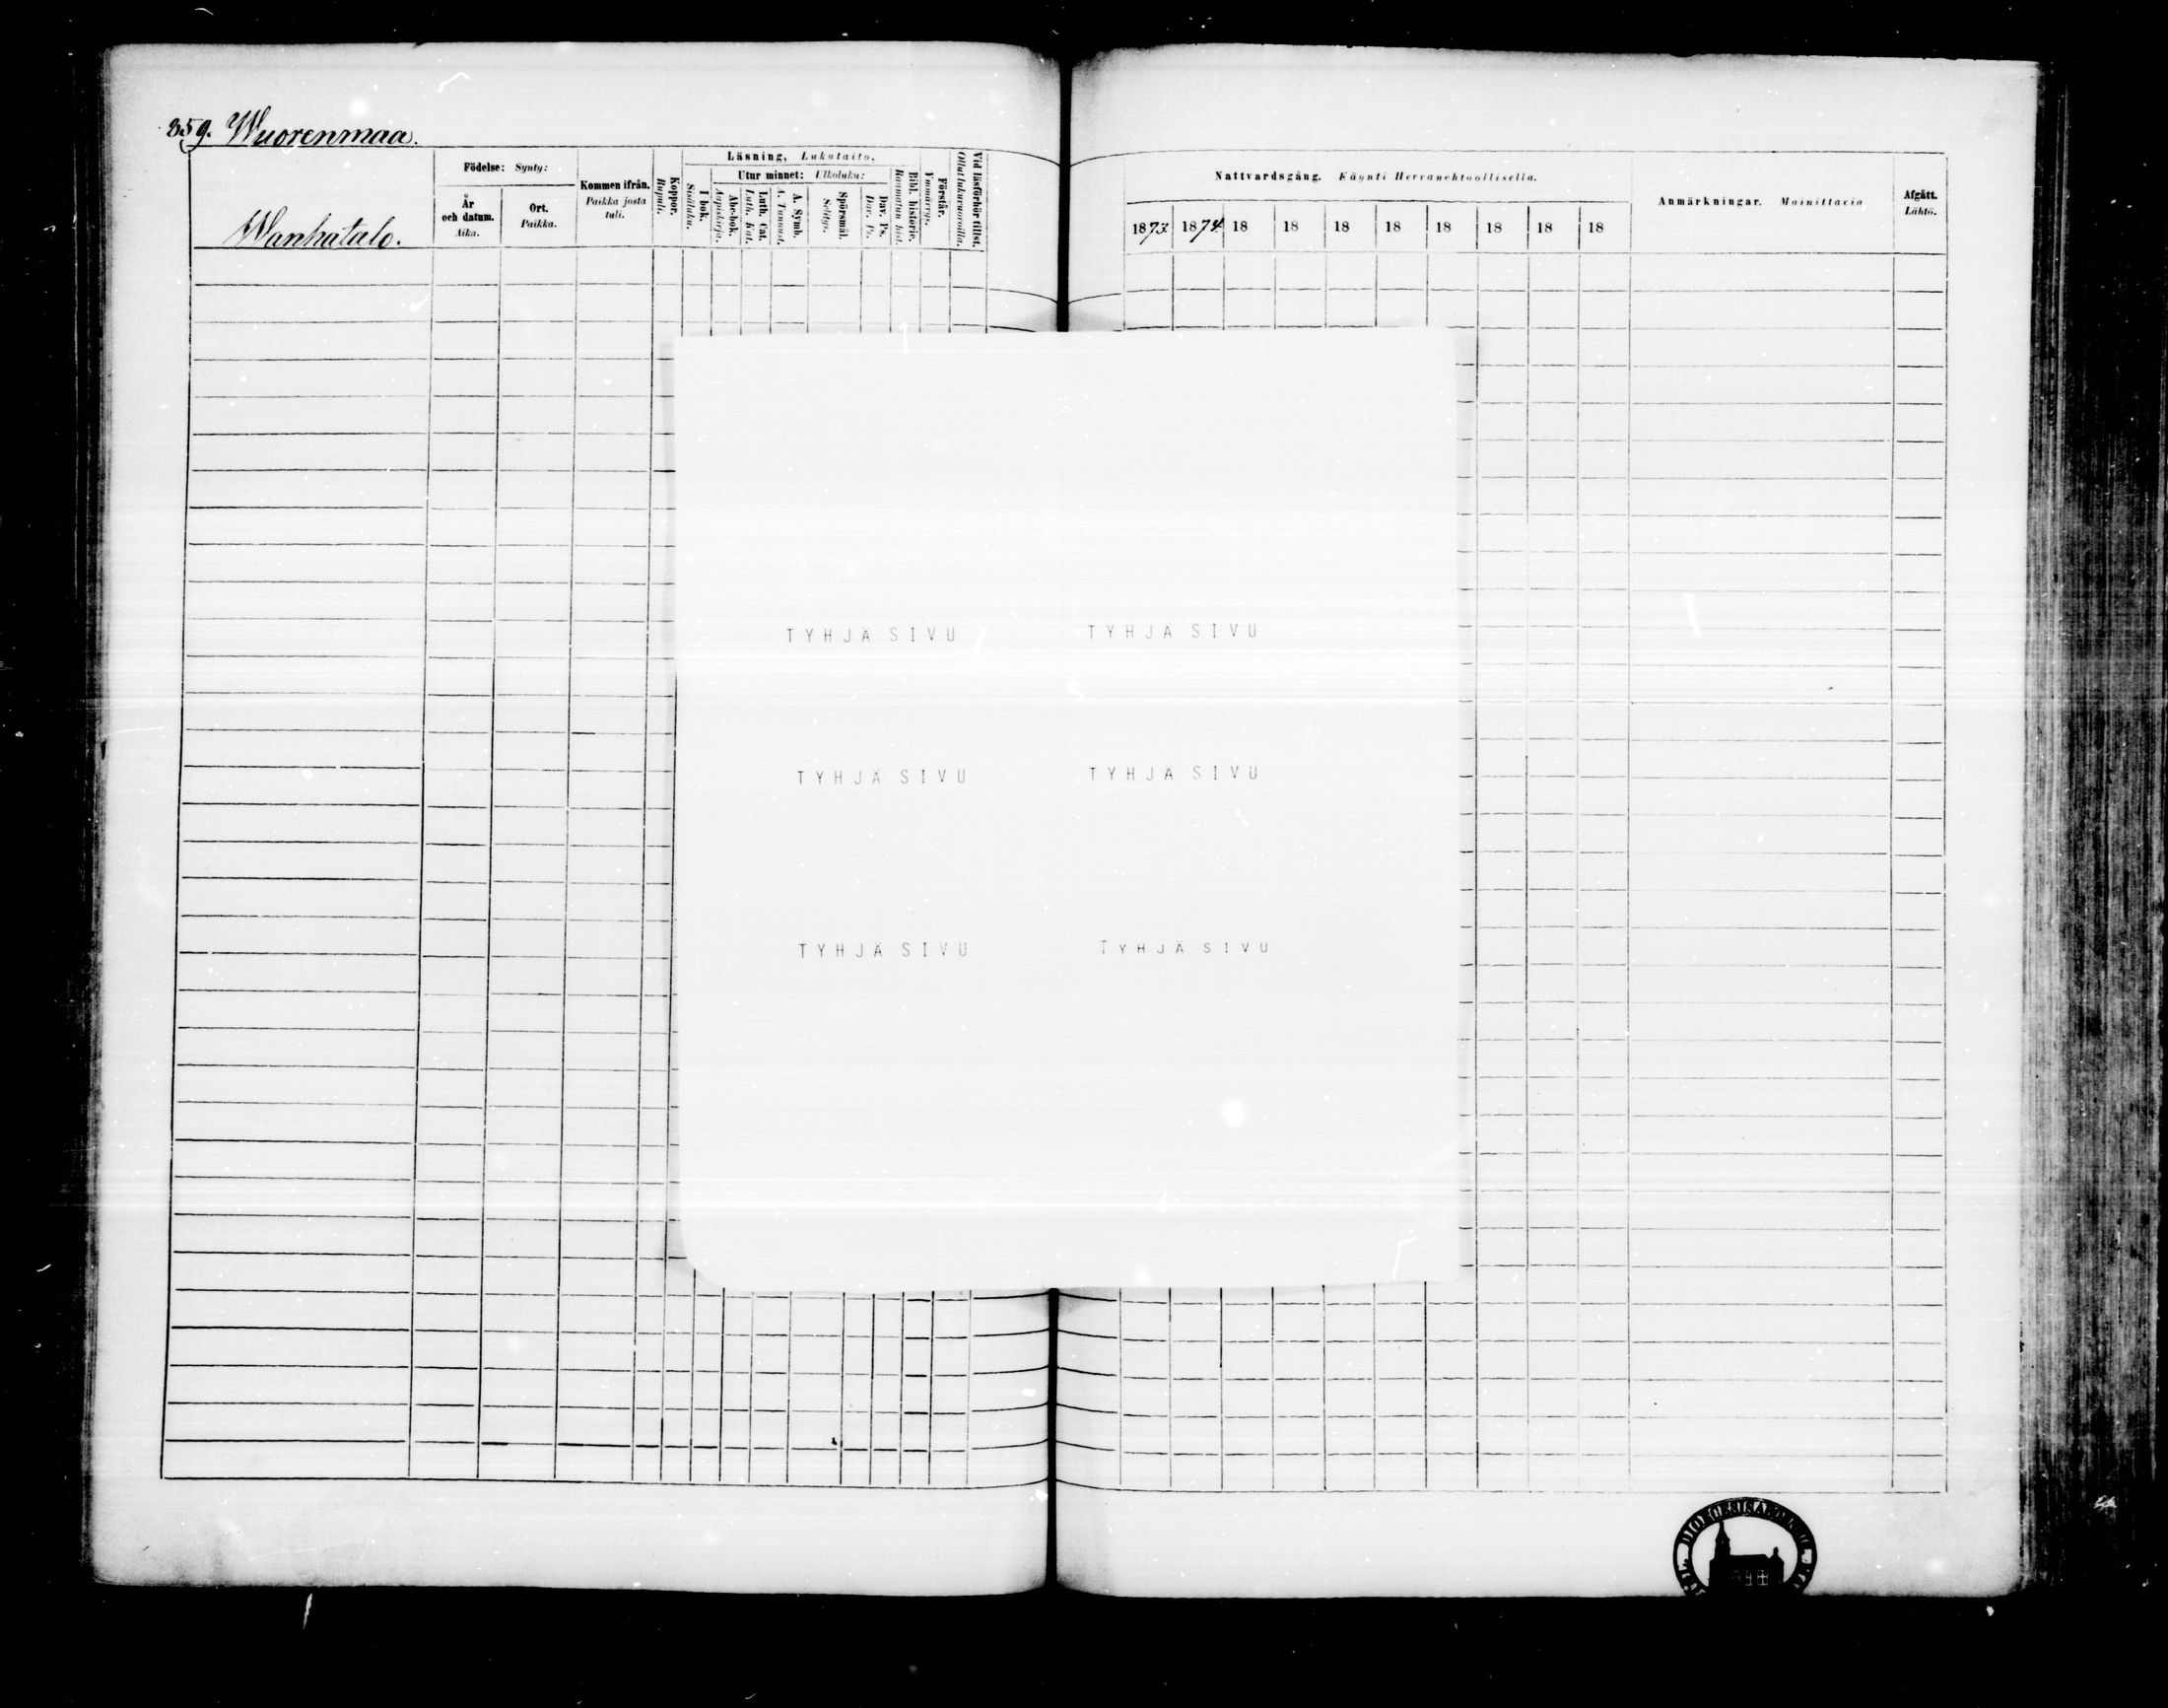 359. Wuorenmaa.
Wanhatalo.
Födelse: Synty:
År och datum. Aika.
Ort. Paikka.
Kommen ifrån. Paikka josta tuli.
Koppor. Rupuli.
Läsning, Lukutaito.
I bok. Sisäluku.
Utur minnet: Ulkoluku:
Abc-bok. Aapiskirja.
Luth. Cat. Luth. Kat.
A. Symb. A. Tunnust.
Spörsmål. Selitys.
Dav. Ps. Dav. Ps.
Bibl. historie. Raamatun hist.
Förstår. Ymmärrys.
Vid läsförhör tillst. Ollut lukuvuoroilla.
Nattvardsgång. Käynti Herranehtoollisella.
1873. 1874. 18 18 18 18 18 18 18 18
Anmärkningar. Mainittavia
Afgått. Lähtö.
TYHJÄ SIVU TYHJÄ SIVU
TYHJÄ SIVU TYHJÄ SIVU
TYHJÄ SIVU TYHJÄ SIVU